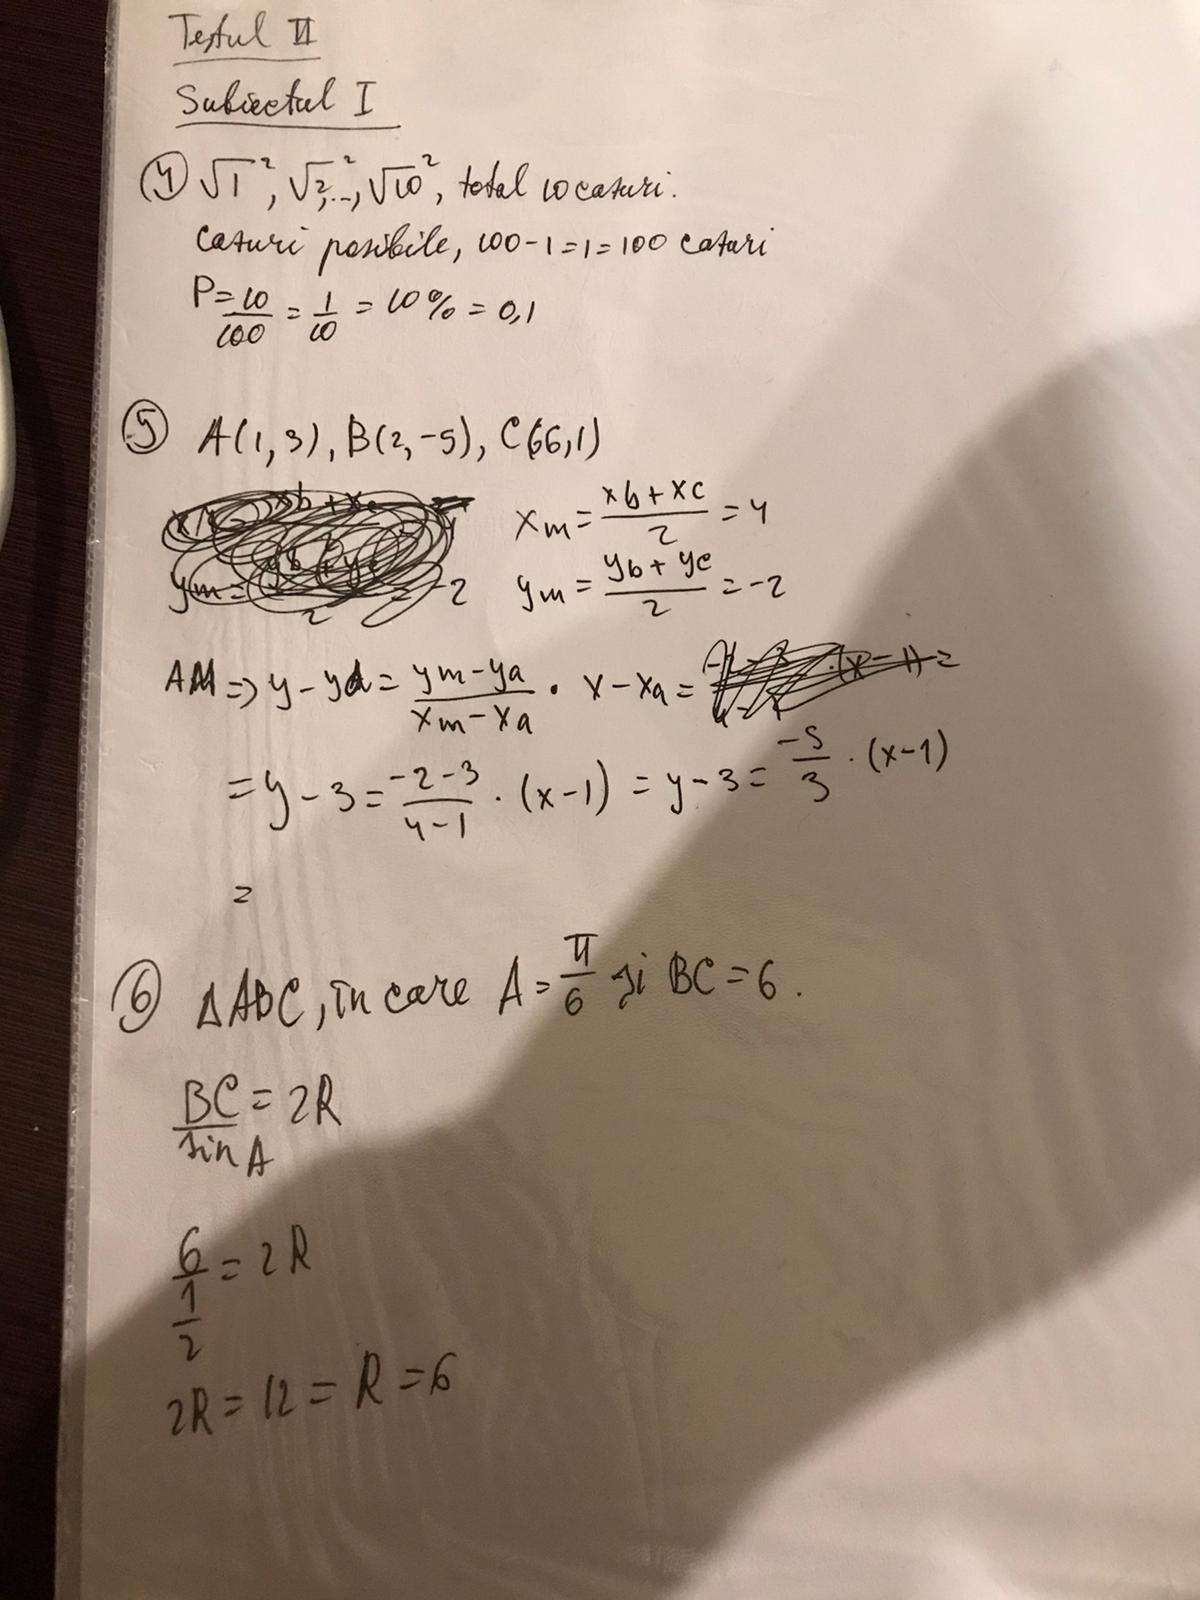 Testul VI
Subiectul I
4 √1², √2², ..., √10², total 10 cazuri.
Cazuri posibile, 100-1=1=100 cazuri
P=10/100 = 1/10 = 10% = 0,1
5 A(1,3), B(2,-5), C(6,1)
xm = (xb+xc)/2 = 4
ym = (yb+yc)/2 = -2
AM => y-ya = (ym-ya)/(xm-xa) · x-xa =
= y-3 = (-2-3)/(4-1) · (x-1) = y-3 = -5/3 · (x-1)
=
6 ΔABC, în care A = π/6 și BC = 6.
BC/sin A = 2R
6/(1/2) = 2R
2R = 12 = R = 6